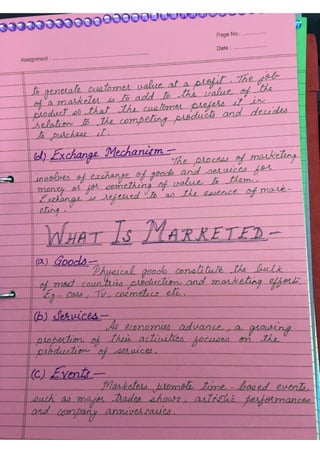 Page No.:
Date :
Assignment
to generate customer value at a profit. The job
of a marketer is to add to the value of the
product so that the customer prefers it in
relation to the competing products and decides
to purchase it.
(d) Exchange Mechanism —
The process of marketing
involves of exchange of goods and services for
money or for something of value to them.
Exchange is referred to as the essence of mark-
eting.
WHAT IS MARKETED —
(a) Goods —
Physical goods constitute the bulk
of most countries production and marketing efforts.
Eg - cars, TV, cosmetics etc.
(b) Services —
As economies advance, a growing
proportion of their activities focuses on the
production of services.
(C) Events —
Marketers promote time - based events
such as major trades shows, artistic performances
and company anniversaries.